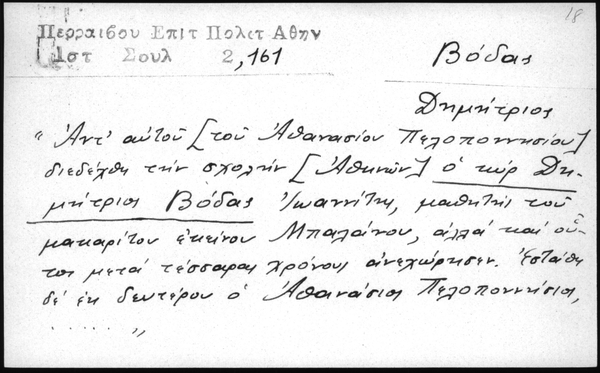 18
Περραιβου Επιτ Πολιτ Αθην
Ιστ Σουλ 2,161
Βόδας
Δημήτριος
"Ἀντ' αὐτοῦ [τοῦ Ἀθανασίου Πελοποννησίου]
διεδέχθη τὴν σχολήν [Ἀθηνῶν] ὁ κύρ Δη-
μήτριος Βόδας Ἰωαννίτης, μαθητὴς τοῦ
μακαρίτου ἐκείνου Μπαλάνου, ἀλλά καί οὗ-
τος μετά τέσσαρας χρόνους ἀνεχώρησεν. Ἐστάθη
δέ ἐκ δευτέρου ὁ Ἀθανάσιος Πελοποννήσιος,
. . . . . . "